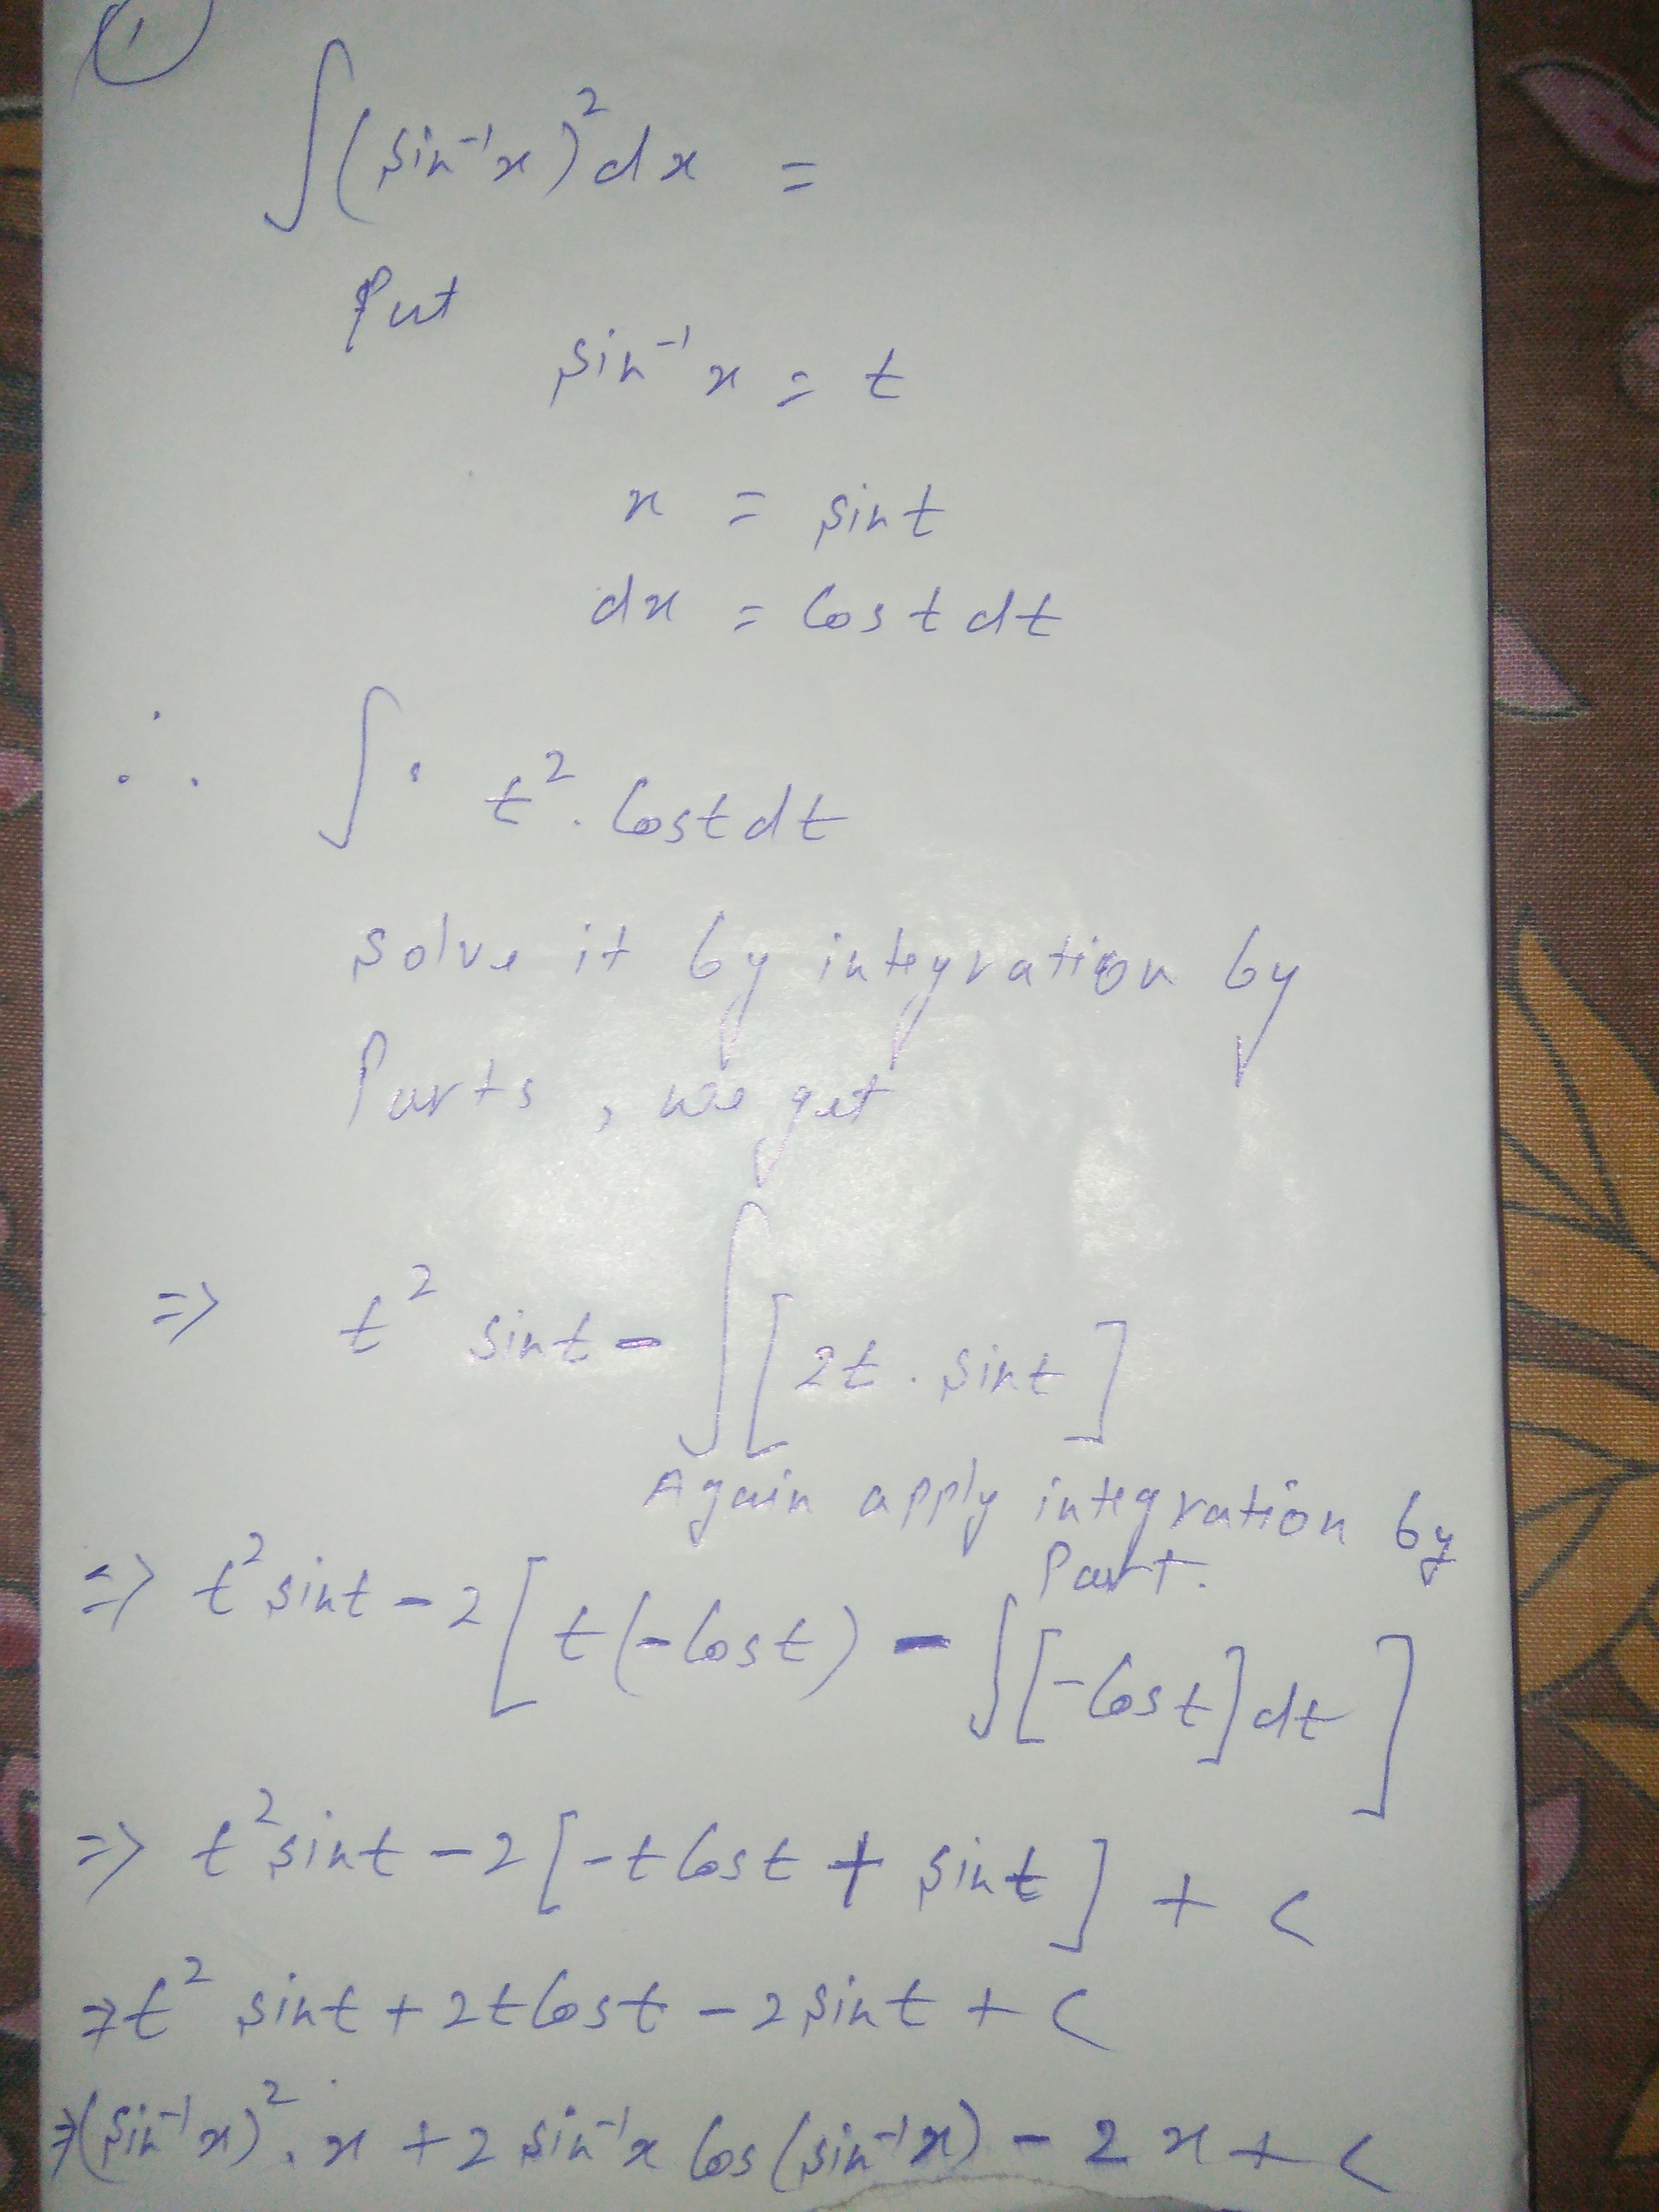 ①
∫(sin⁻¹x)²dx =
Put
sin⁻¹x = t
x = sint
dx = Cost dt
∴ ∫ t². Cost dt
Solve it by integration by
Parts, we get
=> t² sint - ∫[2t . sint]
Again apply integration by
Part.
=> t² sint - 2[t(-Cost) - ∫[-Cost]dt]
=> t² sint - 2[-t Cost + sint] + C
=> t² sint + 2t Cost - 2 sint + C
=> (sin⁻¹x)². x + 2 sin⁻¹x Cos(sin⁻¹x) - 2x + C